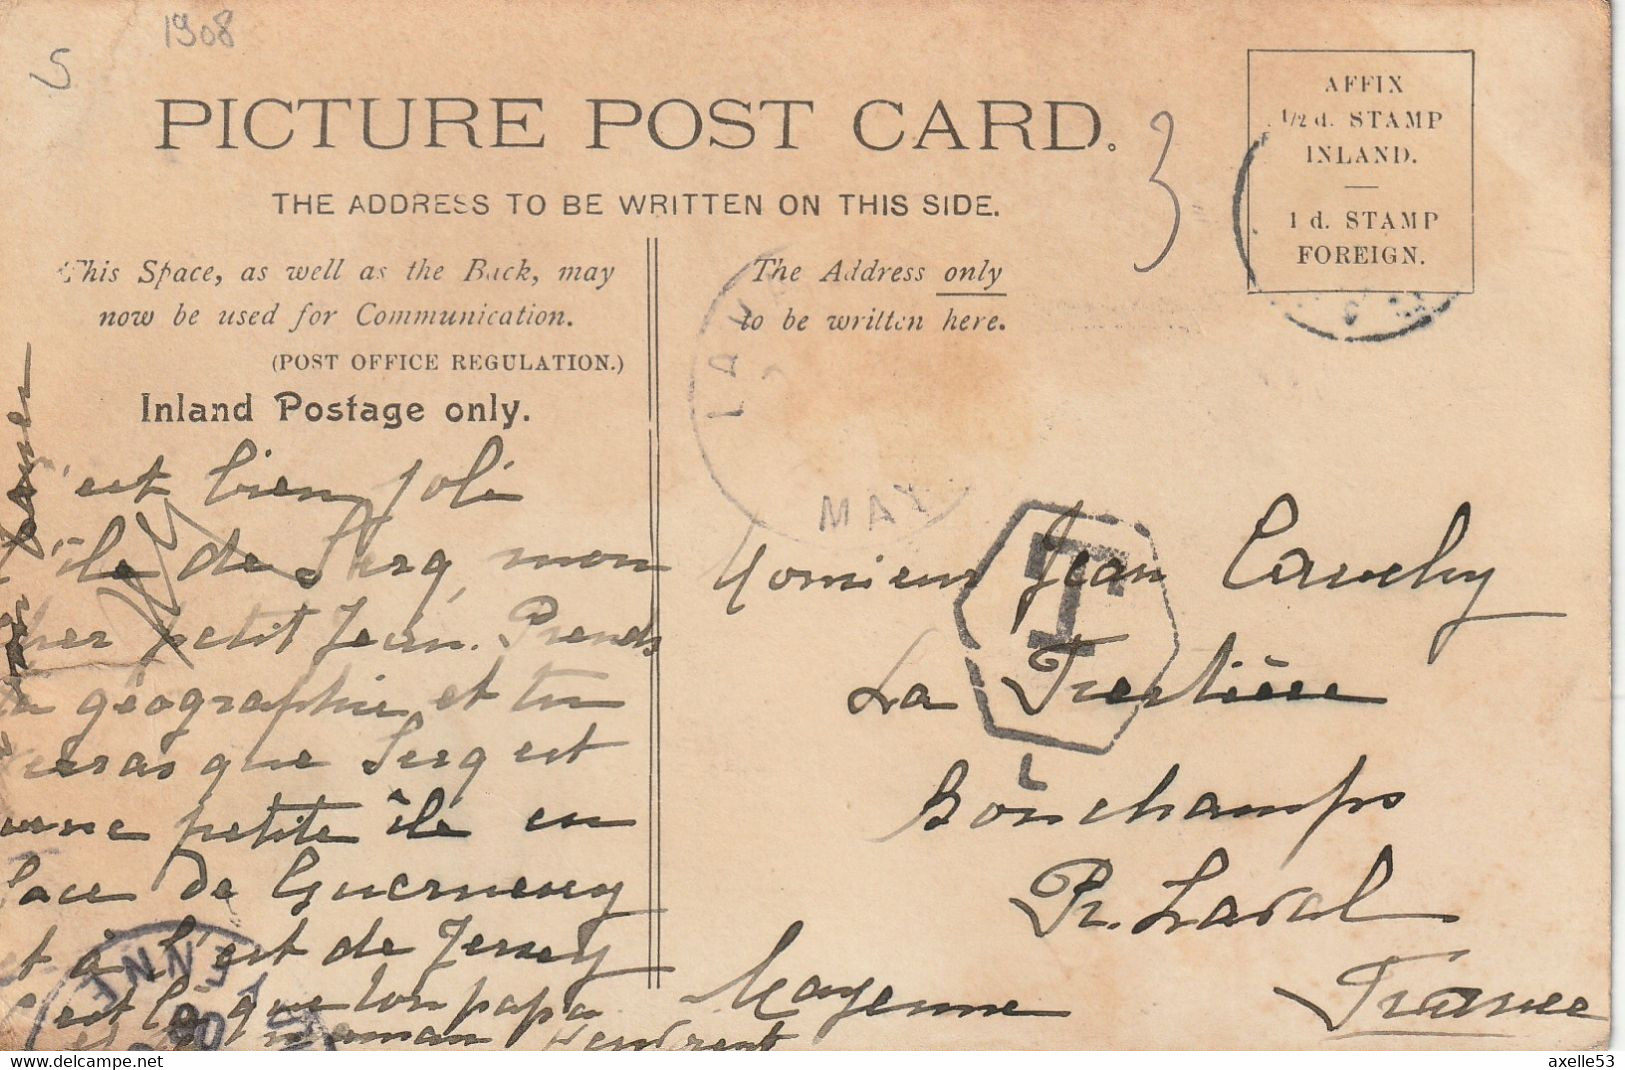 1908
5
PICTURE POST CARD.
3
AFFIX
1/2 d. STAMP
INLAND.
1 d. STAMP
FOREIGN.
THE ADDRESS TO BE WRITTEN ON THIS SIDE.
This Space, as well as the Back, may
now be used for Communication.
(POST OFFICE REGULATION.)
Inland Postage only.
The Address only
to be written here.
LAVAL
MAY
T
'est bien joli
l'île de Serq, mon
cher petit Jean. Prends
ta géographie et tu
verras que Serq est
une petite île en
face de Guernesey
et à l'est de Jersey
C'est là que ton papa
et ta maman
Monsieur Jean Cauchy
La
Bonchamps
Pr. Laval
Mayenne
France
ENNE
axelle53